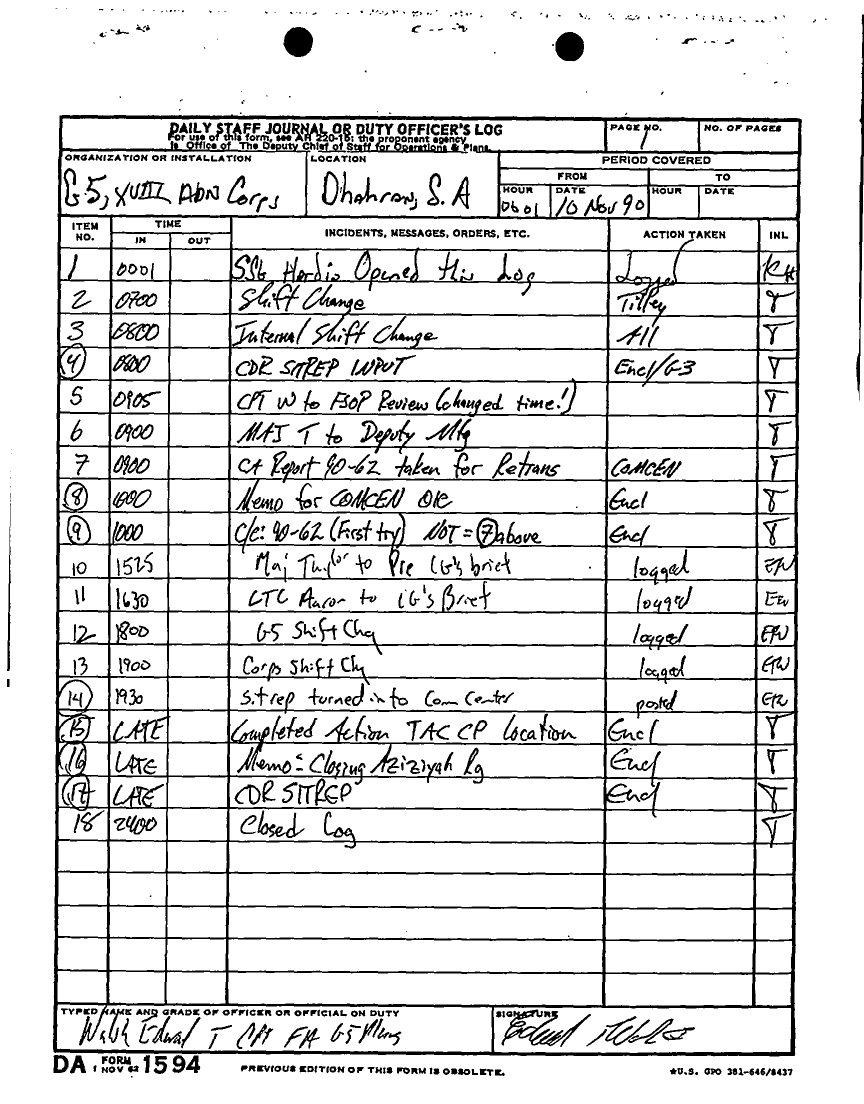 DAILY STAFF JOURNAL OR DUTY OFFICER'S LOG
For use of this form, see AR 220-15; the proponent agency
is Office of The Deputy Chief of Staff for Operations & Plans.
PAGE NO.
1
NO. OF PAGES
ORGANIZATION OR INSTALLATION
G5, XVIII ABN Corps
LOCATION
Dhahran, S.A
PERIOD COVERED
FROM TO
HOUR DATE HOUR DATE
0001 10 Nov 90
ITEM NO. TIME IN OUT INCIDENTS, MESSAGES, ORDERS, ETC. ACTION TAKEN INL
1 0001 SSG Opened this Log Logged KH
2 0700 Shift Change Tilley T
3 0800 Internal Shift Change All T
4 0800 CDR SITREP INPUT Encl/G3 T
5 0905 CPT W to FSOP Review (changed time!) T
6 0900 MAJ T to Deputy Mtg T
7 0900 CA Report 90-62 taken for Retrans COMCEN T
8 1000 Memo for COMCEN OIC Encl T
9 1000 C/e: 90-62 (First try) NOT = 7 above Encl T
10 1525 Maj Taylor to Pre CG's brief logged EW
11 1630 LTC Aaron to CG's Brief logged EW
12 1800 G5 Shift Chg logged
13 1900 Corps Shift Chg logged
14 1930 Sitrep turned in to Com Center posted
15 LATE Completed Action TAC CP Location Encl T
16 LATE Memo: Closing Aziziyah Rg Encl T
17 LATE CDR SITREP Encl T
18 2400 Closed Log T
TYPED NAME AND GRADE OF OFFICER OR OFFICIAL ON DUTY
Edward T CPT FA G5
SIGNATURE
DA FORM 1 NOV 62 1594
PREVIOUS EDITION OF THIS FORM IS OBSOLETE.
★U.S. GPO 381-646/8437